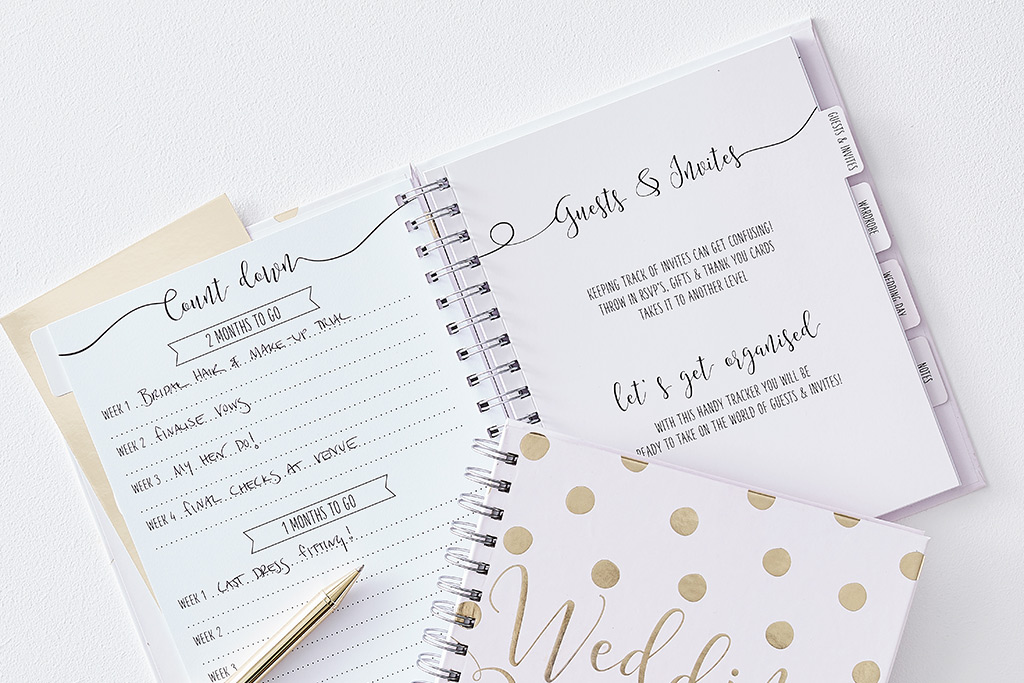 Count down
2 MONTHS TO GO
WEEK 1 BRIDAL HAIR & MAKE-UP TRIAL
WEEK 2 FINALISE VOWS
WEEK 3 MY HEN DO!
WEEK 4 FINAL CHECKS AT VENUE
1 MONTHS TO GO
WEEK 1 LAST DRESS FITTING!
WEEK 2
WEEK 3
Guests & Invites
KEEPING TRACK OF INVITES CAN GET CONFUSING!
THROW IN RSVP'S, GIFTS & THANK YOU CARDS
TAKES IT TO ANOTHER LEVEL
let's get organised
WITH THIS HANDY TRACKER YOU WILL BE
READY TO TAKE ON THE WORLD OF GUESTS & INVITES!
GUESTS & INVITES
WARDROBE
WEDDING DAY
NOTES
Weddin